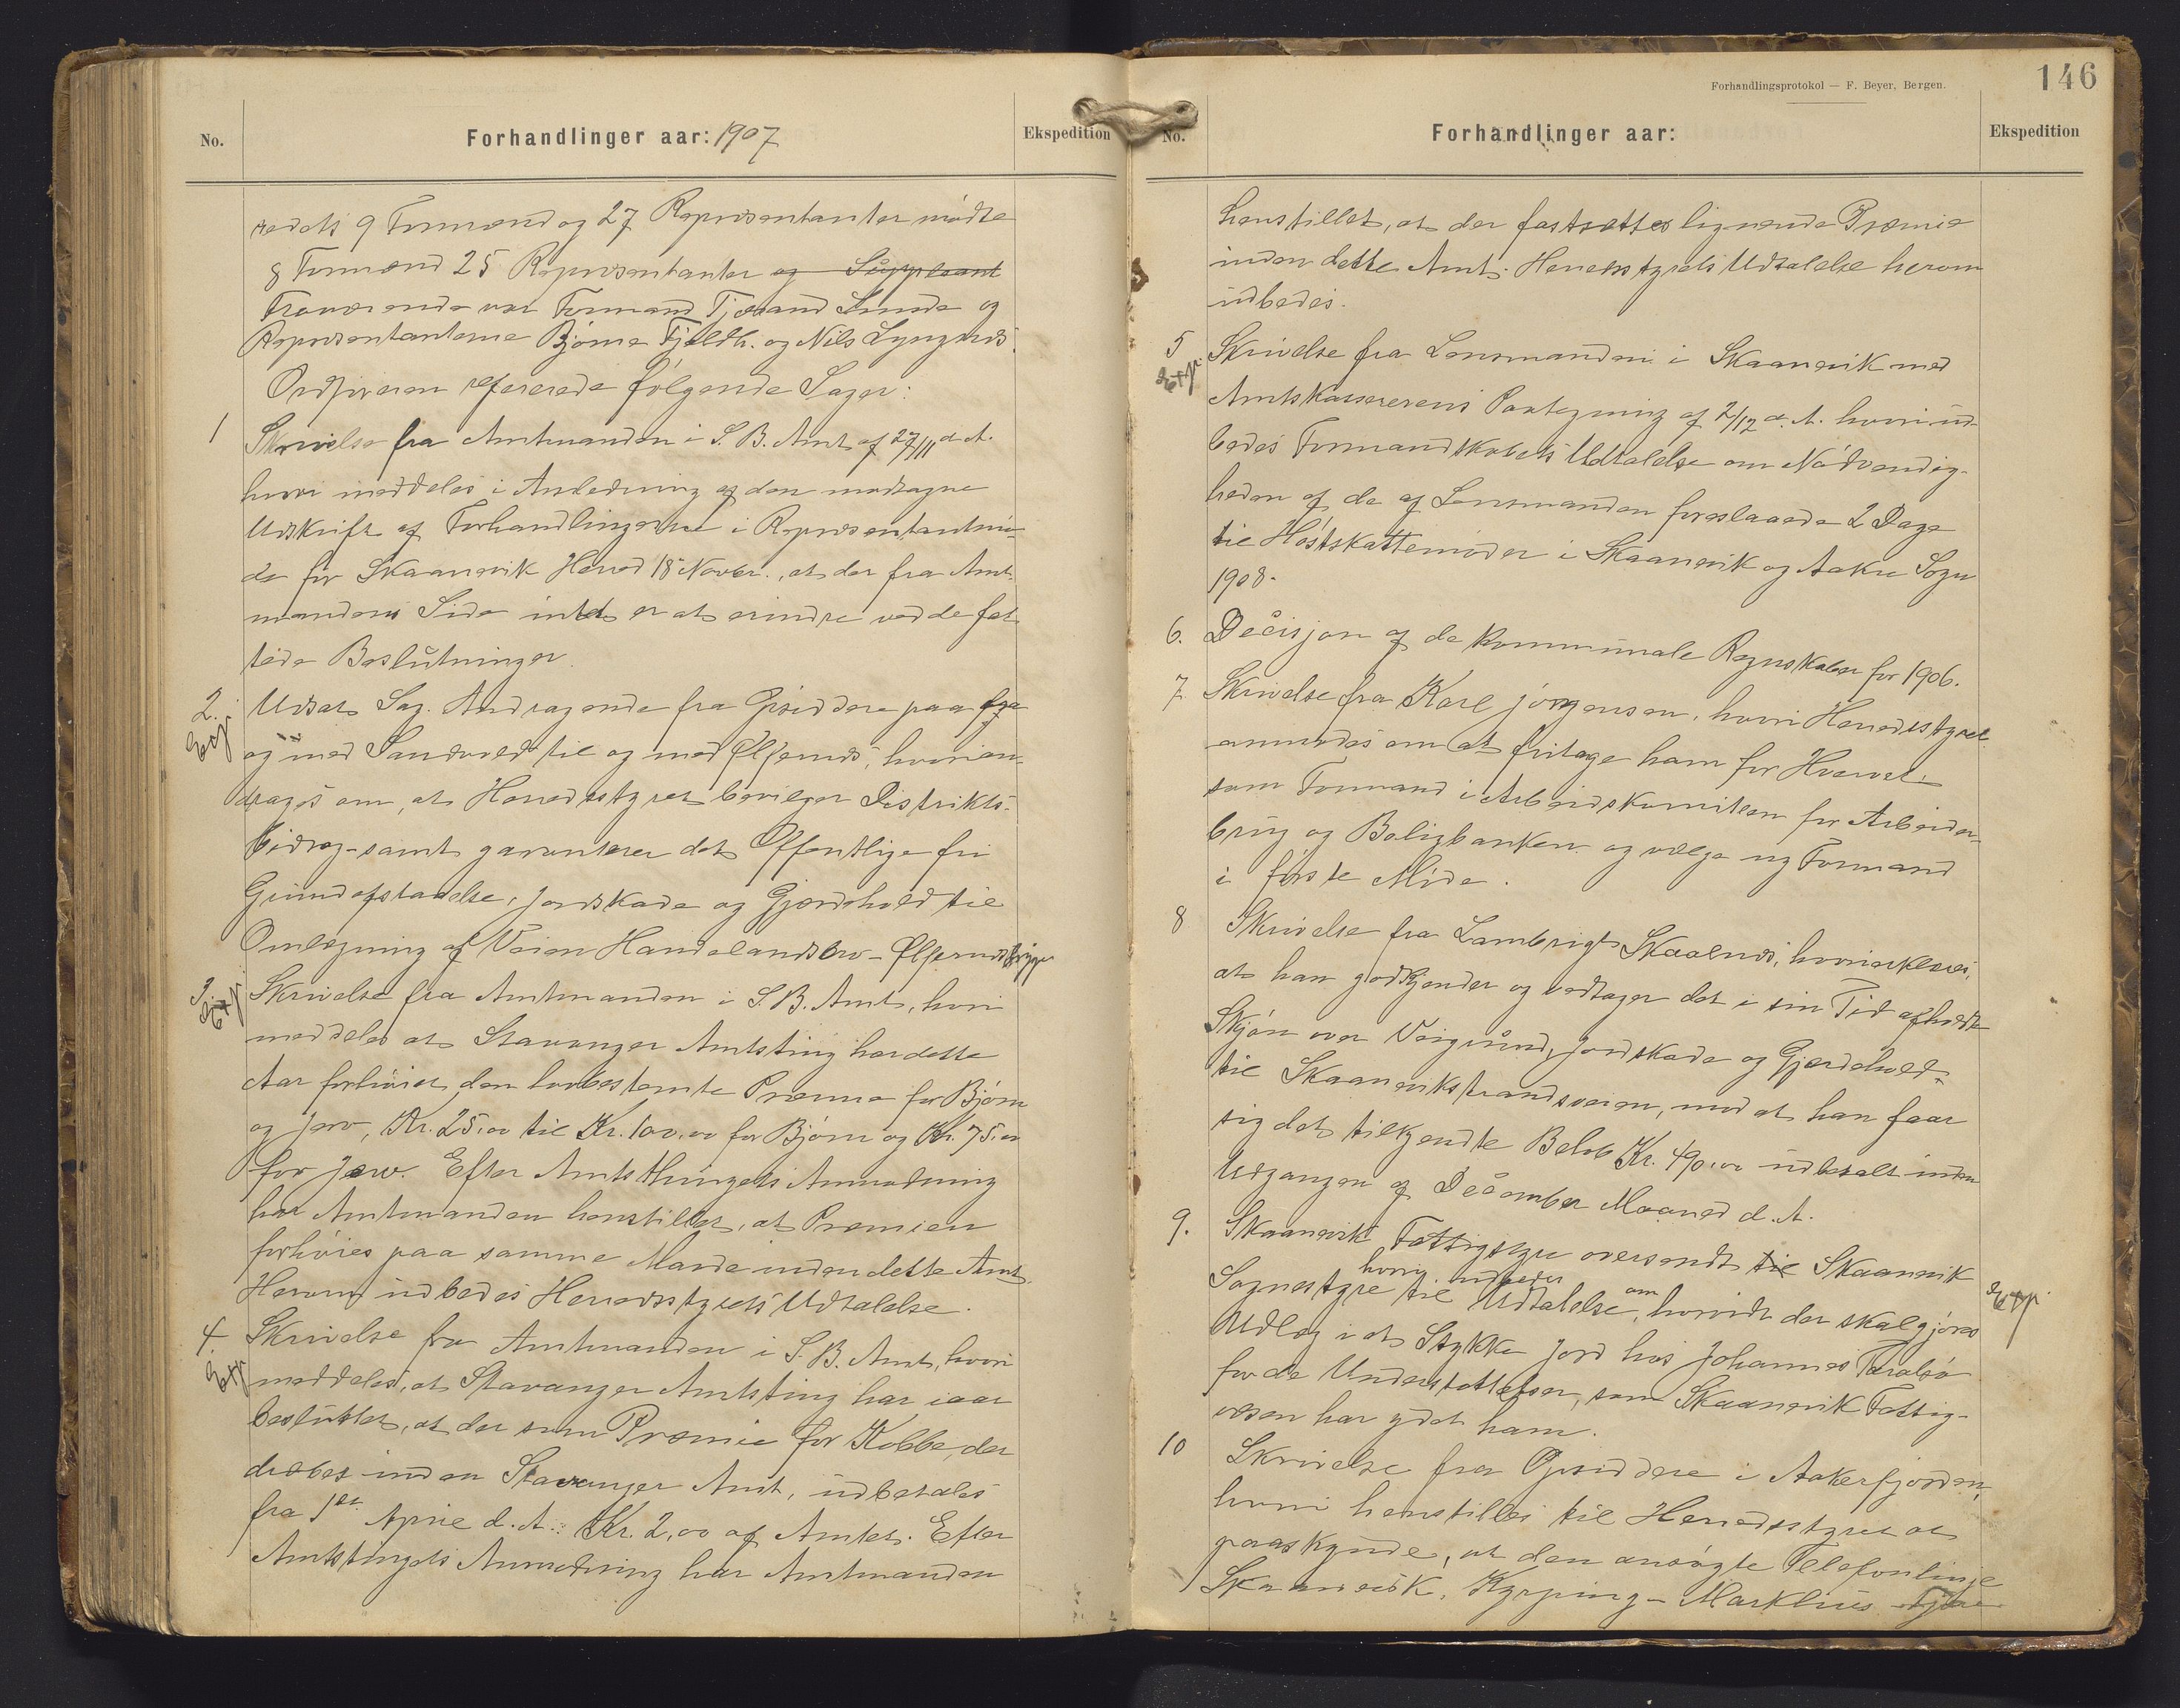 No.
Forhandlinger aar: 1907
Ekspedition
redets 9 Formænd og 27 Repræsentanter mødte
8 Formænd 25 Repræsentanter og Suppleant
Fraværende var Formand Tjerand Lunde og
Repræsentanterne Bjørne Fjeldh. og Nils Lyngnæs.
Ordføreren refererede følgende Sager:
1 Skrivelse fra Amtmanden i S. B. Amt af 27/11 d. A.
hvori meddeles i Anledning af den modtagne
Udskrift af Forhandlingerne i Repræsentantmø-
de for Skaanevik Herred 18 Novbr., at der fra Amt-
mandens Side intet er at erindre ved de fat-
tede Beslutninger.
2. Udsat Sag. Andragende fra Opsiddere paa fra
Exp.
og med Sandvold til og med Ølfernæs, hvori an-
drages om, at Herredsstyret bevilger Distrikts-
bidrag samt garanterer det Offentlige fri
Grundafstaaelse, Jordskade og Gjærdehold til
Omlægning af Veien Handelandsbro - Ølfernæsbrygge
3. Skrivelse fra Amtmanden i S. B. Amt, hvori
Exp.
meddeles at Stavanger Amtsting har dette
Aar forhøiet den lovbestemte Præmie for Bjørn
og Jerv, Kr. 25,00 til Kr. 100,00 for Bjørn og Kr. 75,00
for Jerv. Efter Amtsthingets Anmodning
har Amtmanden henstillet, at Præmien
forhøies paa samme Maade inden dette Amt.
Herom udbedes Herredsstyrets Udtalelse.
4. Skrivelse fra Amtmanden i S. B. Amt, hvori
Exp.
meddeles, at Stavanger Amtsting har iaar
besluttet, at der som Præmie for Kobbe, der
dræbes inden Stavanger Amt, udbetales
fra 1ste April d. A.: Kr. 2,00 af Amtet. Efter
Amtstingets Anmodning har Amtmanden
Forhandlingsprotokol — F. Beyer, Bergen.
146
No.
Forhandlinger aar:
Ekspedition
henstillet, at der fastsættes lignende Præmie
inden dette Amt. Herredsstyrets Udtalelse herom
udbedes.
5 Skrivelse fra Lensmanden i Skaanevik med
Exp.
Amtskassererens Paategning af 2/12 d. A. hvori ud-
bedes Formandskabets Udtalelse om Nødvendig-
heden af de af Lensmanden foreslaaede 2 Dage
til Høstskattemøder i Skaanevik og Aakre Sogn
1908.
6. Decisjon af de kommunale Regnskaber for 1906.
7. Skrivelse fra Karl Jørgensen, hvori Herredsstyret
anmodes om at fritage ham for Hvervet
som Formand i Arbeidskomiteen for Arbeider-
brug og Boligbanken og vælge ny Formand
i første Møde.
8 Skrivelse fra Lambrigt Skaalnæs, hvori erklæres,
at han godkjender og vedtager det i sin Tid afholdte
Skjøn over Veigrund, Jordskade og Gjærdehold
til Skaaneviksstrandsveien, mod at han faar
sig det tilkjendte Beløb Kr. 490,00 udbetalt inden
Udgangen af December Maaned d. A.
9. Skaanevik Fattigstyre oversendt til Skaanevik
hvori udbeder
Sognestyre til Udtalelse om, hvorvidt der skal gjøres
Exp.
Udlæg i et Stykke Jord hos Johannes Taralsø
for de Understøttelser, som Skaanevik Fattig-
væsen har ydet ham.
10 Skrivelse fra Opsiddere i Aakerfjorden,
hvori henstilles til Herredsstyret at
paaskynde, at den ansøgte Telefonlinje
Skaanevik, Kyrping - Markhus